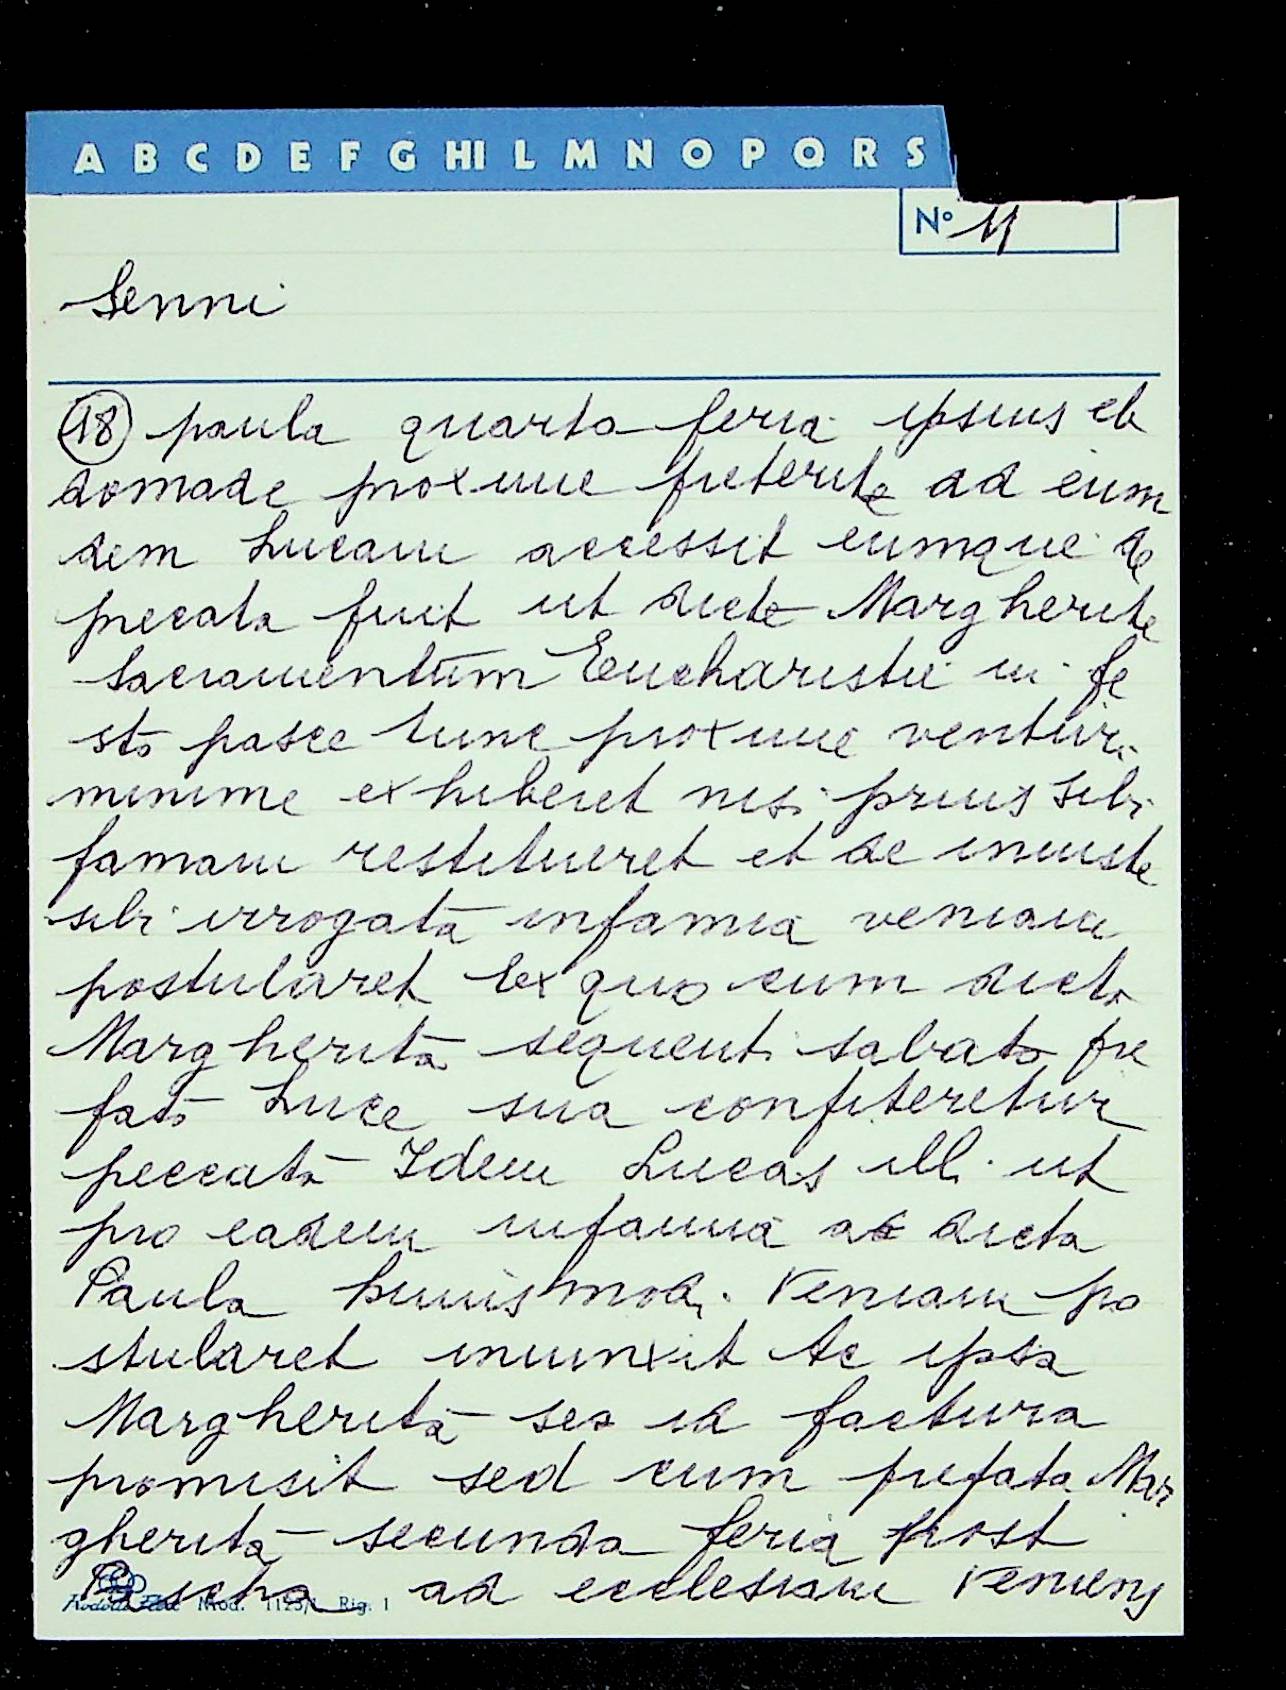 A B C D E F G HI L M N O P Q R S
N° 11
Senni
(18) paula quarta feria ipsius eb
domade proxime preterite ad eum
dem Lucam accessit eumque de
precata fuit ut dicte Margherite
sacramentum Eucharistie in fe
sto pasce tunc proxime venturi
minime exhiberet nisi prius sibi
famam restitueret et de iniuste
sibi irrogata infamia veniam
postularet Ex quo cum dicta
Margherita sequenti sabato pre
fato Luce sua confiteretur
peccata Idem Lucas illi ut
pro eadem infamia ad dicta
Paula huiusmodi veniam po
stularet iniunxit Ac ipsa
Margherita seo id factura
promisit sed cum prefata Mar
gherita secunda feria post
Pascha ad ecclesiam veniens
Mod. 1125/1 Rig. 1